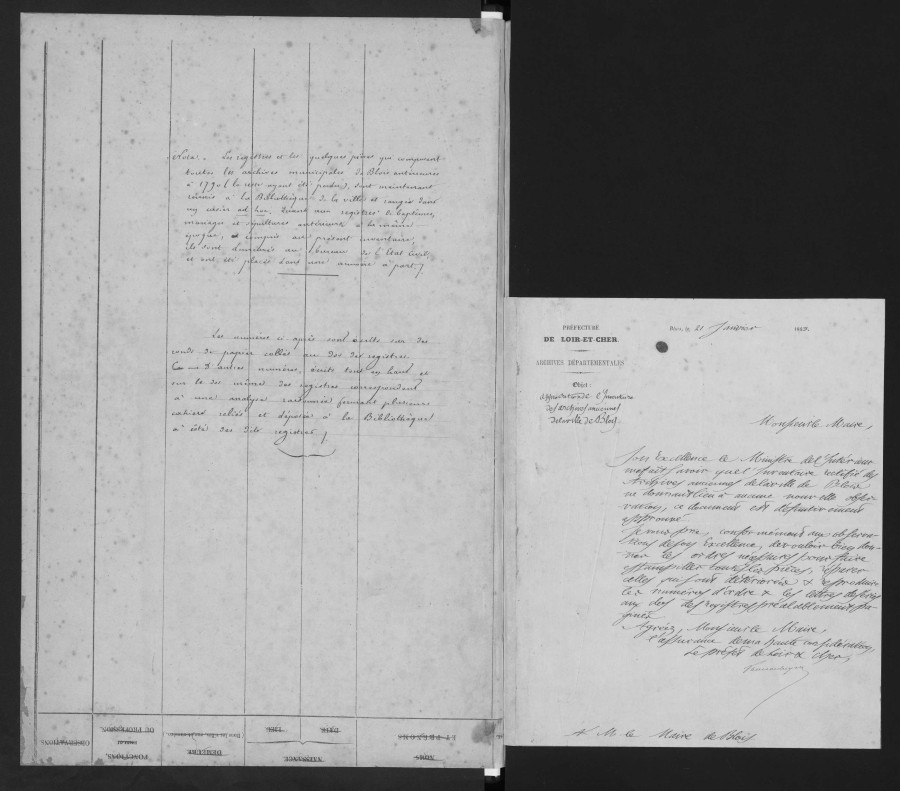 Nota. Les registres et les quelques pièces qui composent
toutes les archives municipales de Blois antérieures
à 1790 (le reste ayant été perdu), sont maintenant
réunis à la Bibliothèque de la ville et rangés dans
un casier ad hoc, quant aux registres de baptêmes,
mariages et sépultures antérieurs à la même
époque, compris au présent inventaire,
ils sont demeurés au bureau de l'Etat civil,
et ont été placés dans une armoire à part.
Les numéros ci-après sont écrits sur des
ronds de papier collés au dos des registres.
D'autres numéros, écrits tout en haut et
sur le dos même des registres correspondent
à une analyse raisonnée formant plusieurs
cahiers reliés et déposés à la Bibliothèque
à côté des dits registres.
OBSERVATIONS.
FONCTIONS,
DE PROFESSION.
DEMEURE
NAISSANCE
DATE
LIEU.
NOMS
ET PRÉNOMS
PRÉFECTURE
DE LOIR-ET-CHER.
ARCHIVES DÉPARTEMENTALES
Objet:
Approbation de l'Inventaire
des archives anciennes
de la ville de Blois.
Blois, le 21 Janvier
Monsieur le Maire,
Son Excellence le Ministre de l'Intérieur
me fait savoir que l'Inventaire rectifié des
Archives anciennes de la ville de Blois
ne donnant lieu à aucune nouvelle obser-
vation, ce document est définitivement
approuvé.
Je vous prie, conformément aux observa-
tions de Son Excellence, de vouloir bien don-
ner les ordres nécessaires pour faire
estampiller toutes les pièces, réparer
celles qui sont détériorées & reproduire
les numéros d'ordre & les lettres de série
au dos des registres préalablement pa-
ginés.
Agréez, Monsieur le Maire,
l'assurance de ma haute considération,
Le préfet de Loir & Cher,
A M. le Maire de Blois